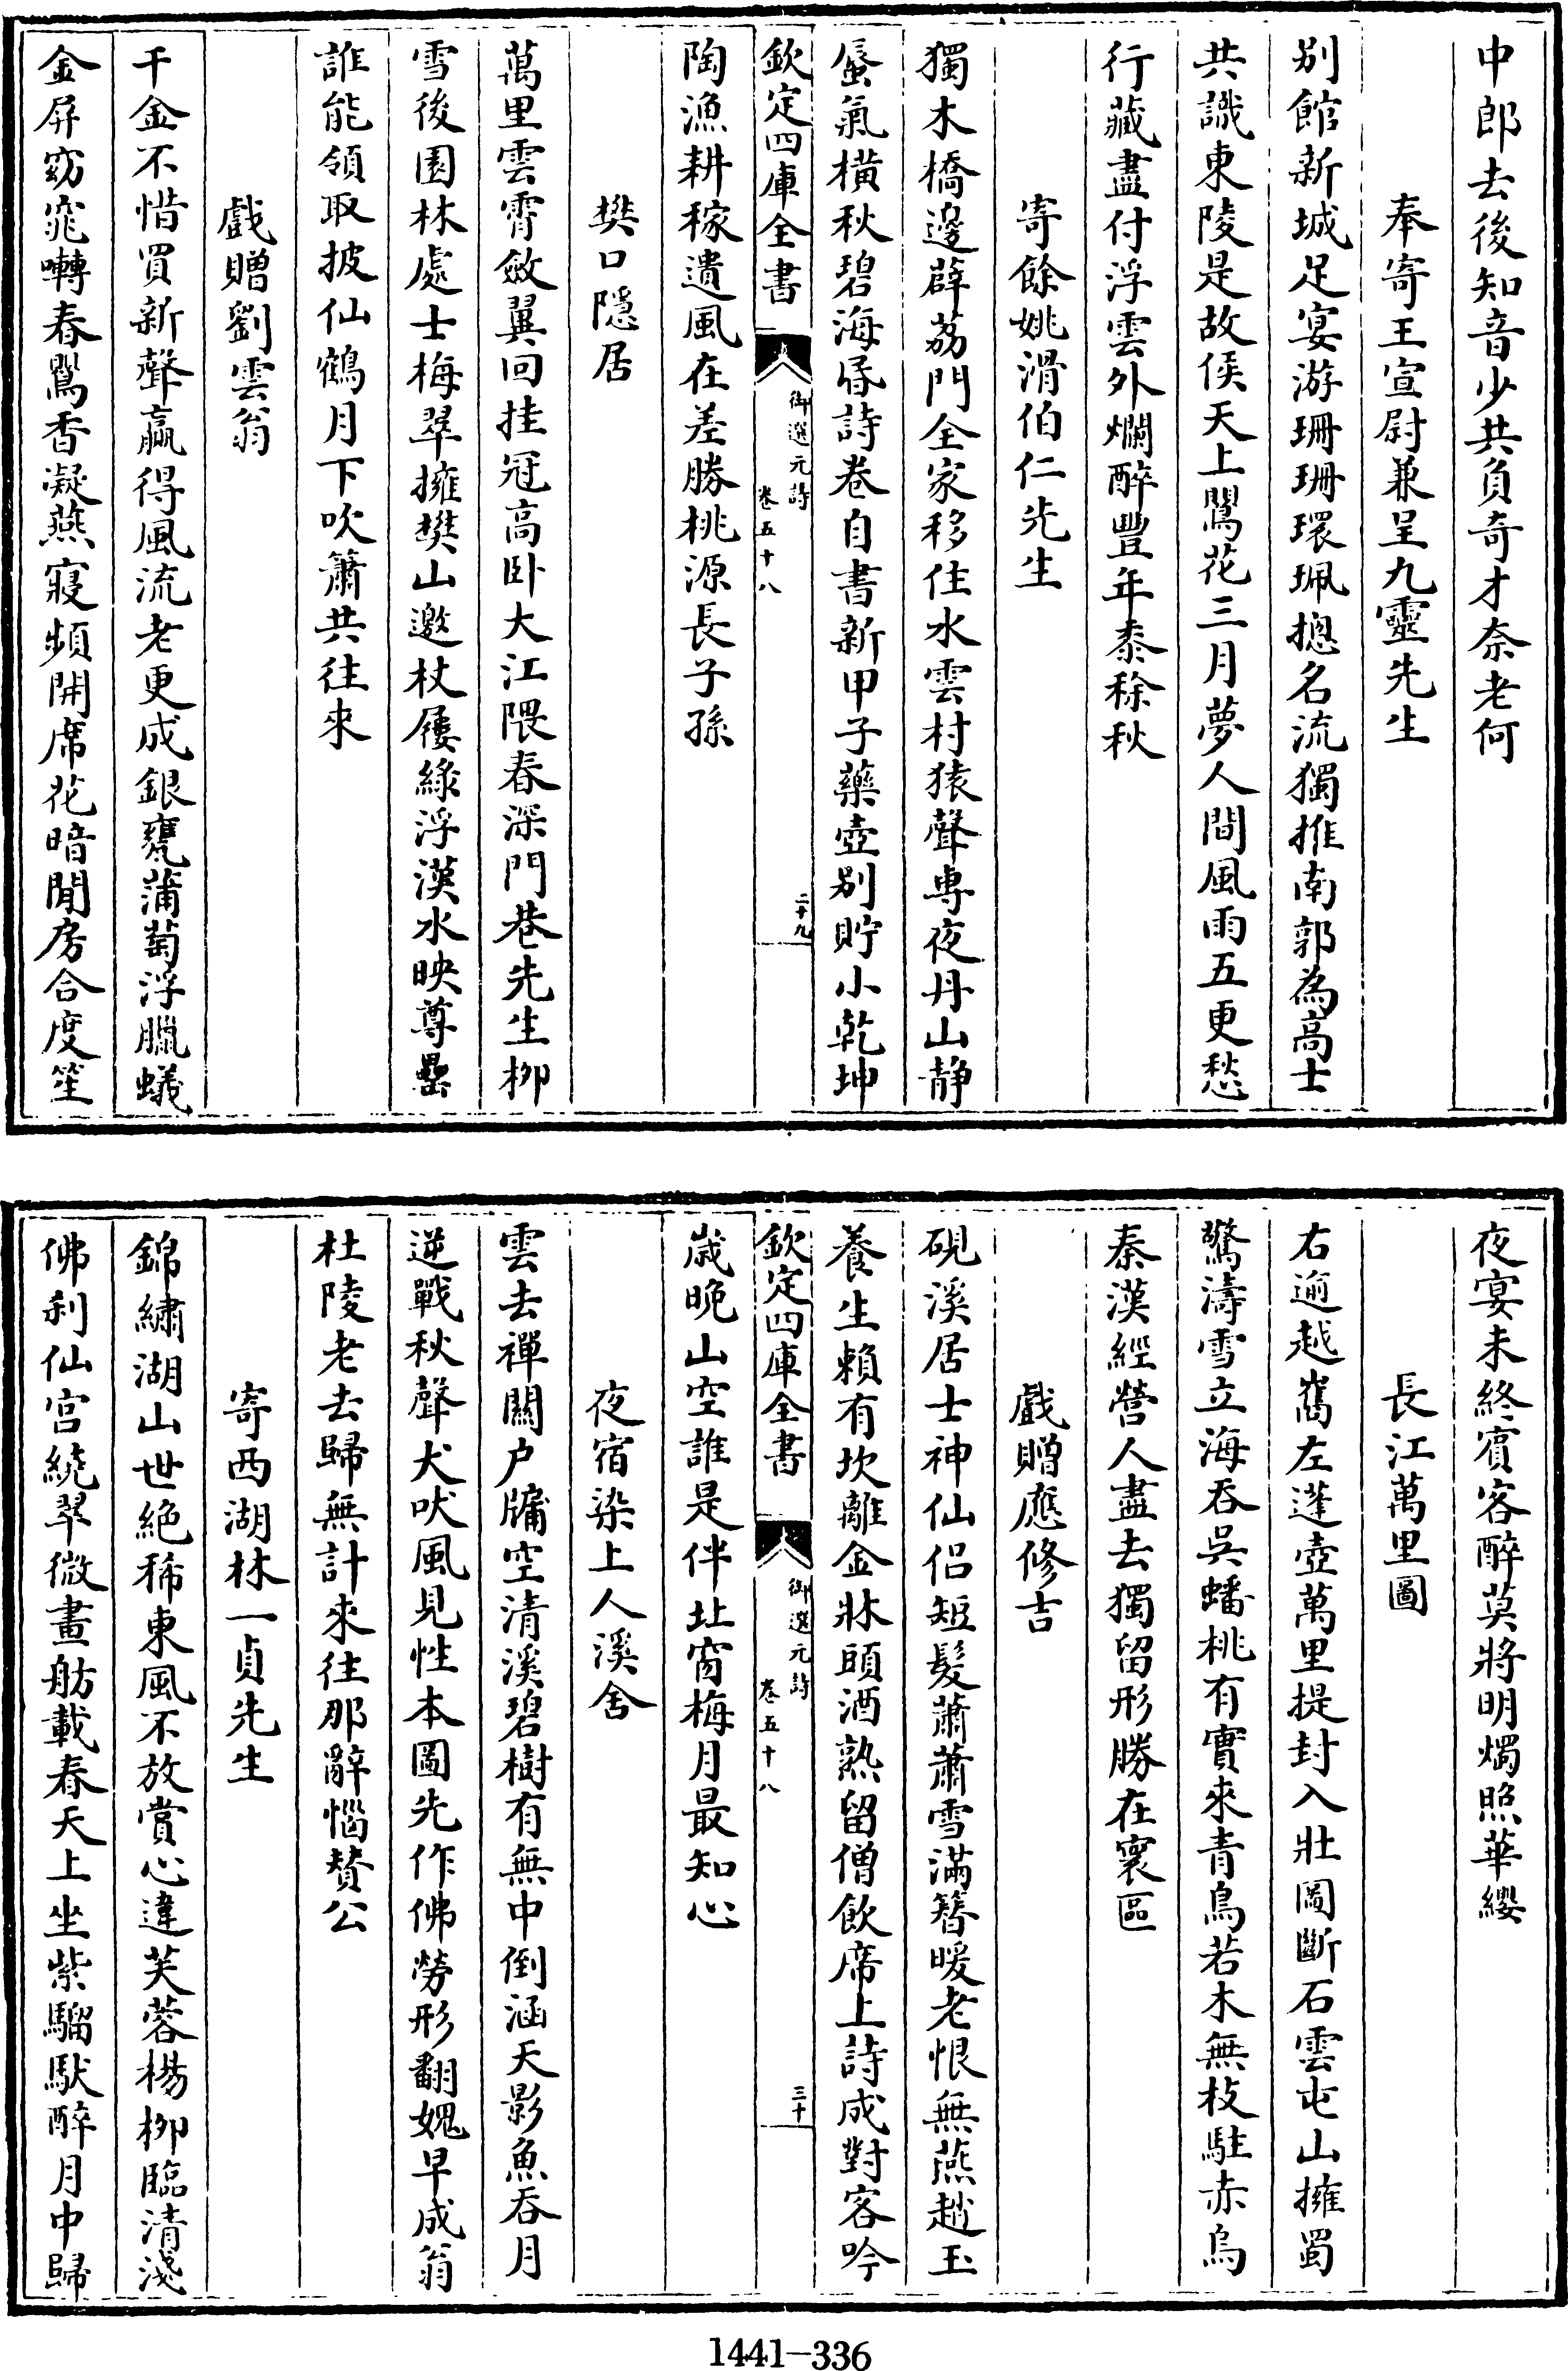 中郎去後知音少共負奇才奈老何
奉寄王宣尉兼呈九靈先生
别館新城足宴游珊珊環珮摠名流獨推南郭為高士
共識東陵是故侯天上鶯花三月夢人間風雨五更愁
行藏盡付浮雲外爛醉豐年黍稌秋
寄餘姚滑伯仁先生
獨木橋邊薜荔門全家移住水雲村猿聲專夜丹山静
蜃氣横秋碧海昏詩卷自書新甲子藥壺别貯小乾坤
欽定四庫全書
御選元詩
卷五十八
二十九
陶漁耕稼遺風在差勝桃源長子孫
樊口隱居
萬里雲霄斂翼回挂冠高卧大江隈春深門巷先生柳
雪後園林處士梅翠擁樊山邀杖屨綠浮漢水映尊罍
誰能領取披仙鶴月下吹簫共往來
戲贈劉雲翁
千金不惜買新聲贏得風流老更成銀甕蒲萄浮臘蟻
金屏窈窕囀春鶯香凝燕寢頻開席花暗閒房合度笙
夜宴未終賓客醉莫將明燭照華纓
長江萬里圖
右逾越嶲左蓬壺萬里提封入壯圖斷石雲屯山擁蜀
驚濤雪立海吞吳蟠桃有實來青鳥若木無枝駐赤烏
秦漢經營人盡去獨留形勝在寰區
戲贈應修吉
硯溪居士神仙侣短髮蕭蕭雪滿簪暖老恨無燕趙玉
養生賴有坎離金牀頭酒熟留僧飲席上詩成對客吟
欽定四庫全書
御選元詩
卷五十八
三十
歲晚山空誰是伴北窗梅月最知心
夜宿染上人溪舍
雲去禪關户牖空清溪碧樹有無中倒涵天影魚吞月
逆戰秋聲犬吠風見性本圖先作佛勞形翻媿早成翁
杜陵老去歸無計來往那辭惱贊公
寄西湖林一貞先生
錦繡湖山世絶稀東風不放賞心違芙蓉楊柳臨清淺
佛刹仙宫繞翠微畫舫載春天上坐紫騮馱醉月中歸
1441-336